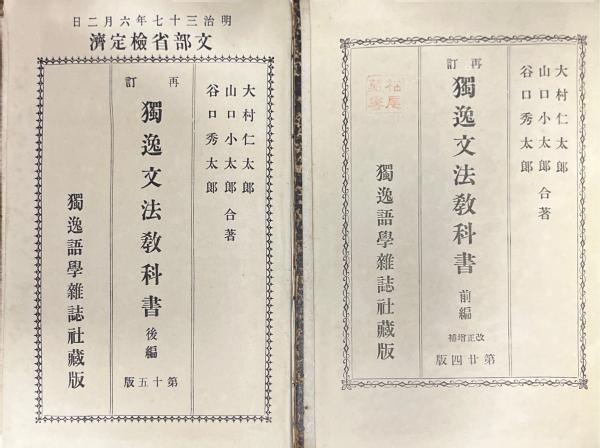 大村仁太郎
山口小太郎 合著
谷口秀太郎
再訂
獨逸文法敎科書 前編
改正增補
第廿四版
獨逸語學雜誌社藏版
明治三十七年六月二日
文部省檢定濟
大村仁太郎
山口小太郎 合著
谷口秀太郎
再訂
獨逸文法敎科書 後編
第十五版
獨逸語學雜誌社藏版